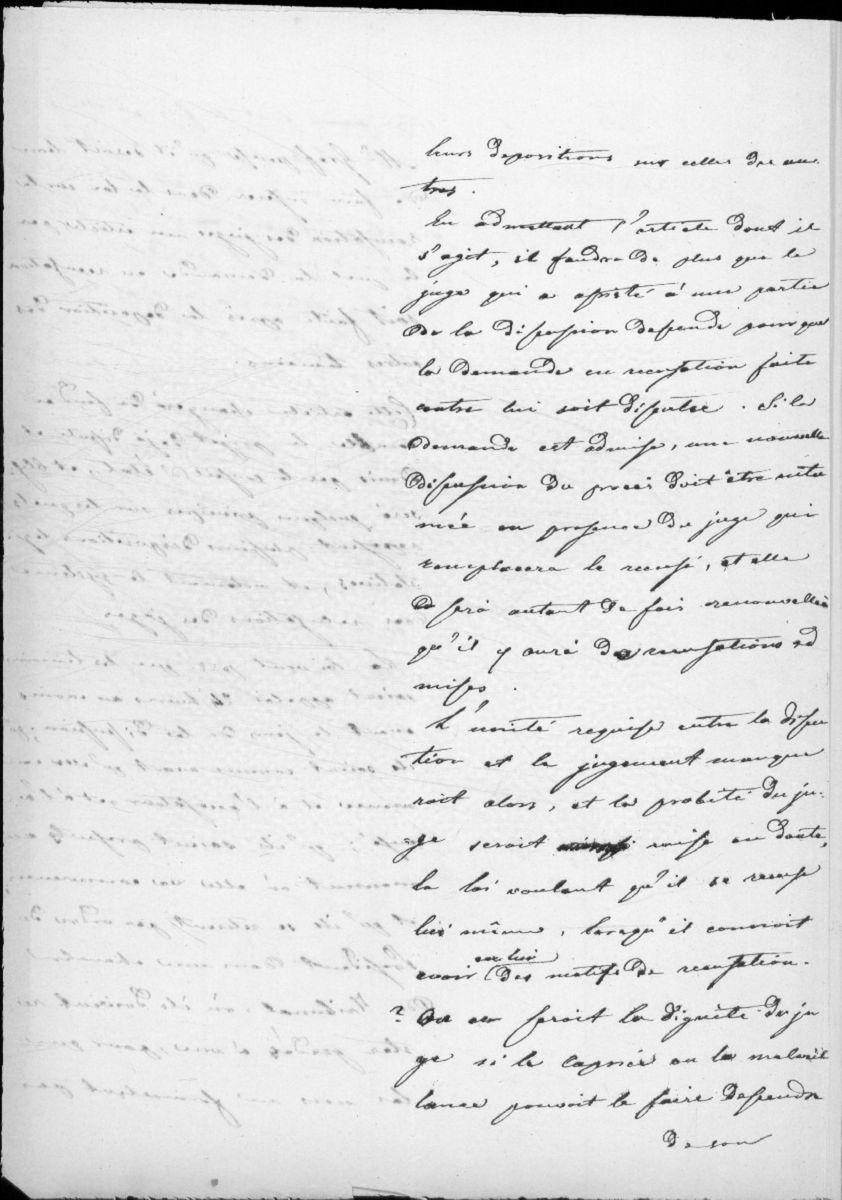 leurs depositions sur celles des au-
tres.
En admettant l'article dont il
s'agit, il faudra de plus que le
juge qui a assisté à une partie
de la discussion dessende pour que
la demande en recusation faite
contre lui soit discutée. Si la
demande est admise, une nouvelle
discussion du procès doit être enta
mée en presence du juge qui
remplacera le recusé, et elle
sera autant de fois renouvellée
qu'il y aura de recusations ad
mises.
L'unité requise entre la discu
tion et le jugement manque
roit alors, et la probité du ju-
ge seroit mise en doute,
la loi voulant qu'il se recuse
lui même, lorsqu'il connoit
en lui
avoir des motifs de recusation.
? Ou en seroit la dignité du ju
ge si le caprice ou la malveil
lance pouvoit le faire dessendre
de son